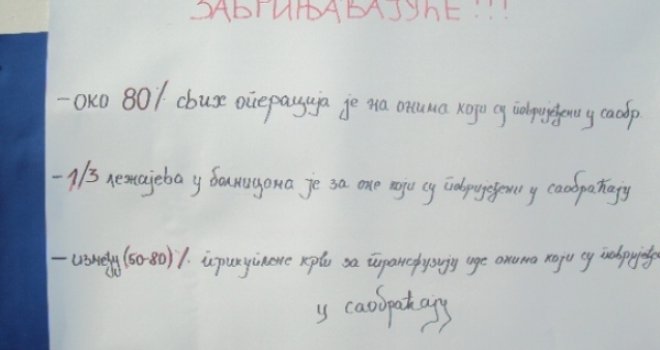 ЗАБРИЊАВАЈУЋЕ!!!
- око 80% свих операција је на онима који су повријеђени у саобр.
- 1/3 лежајева у болницома је за оне који су повријеђени у саобраћају
- између (50-80)% прикупљене крви за трансфузију иде онима који су повријеђе
у саобраћају